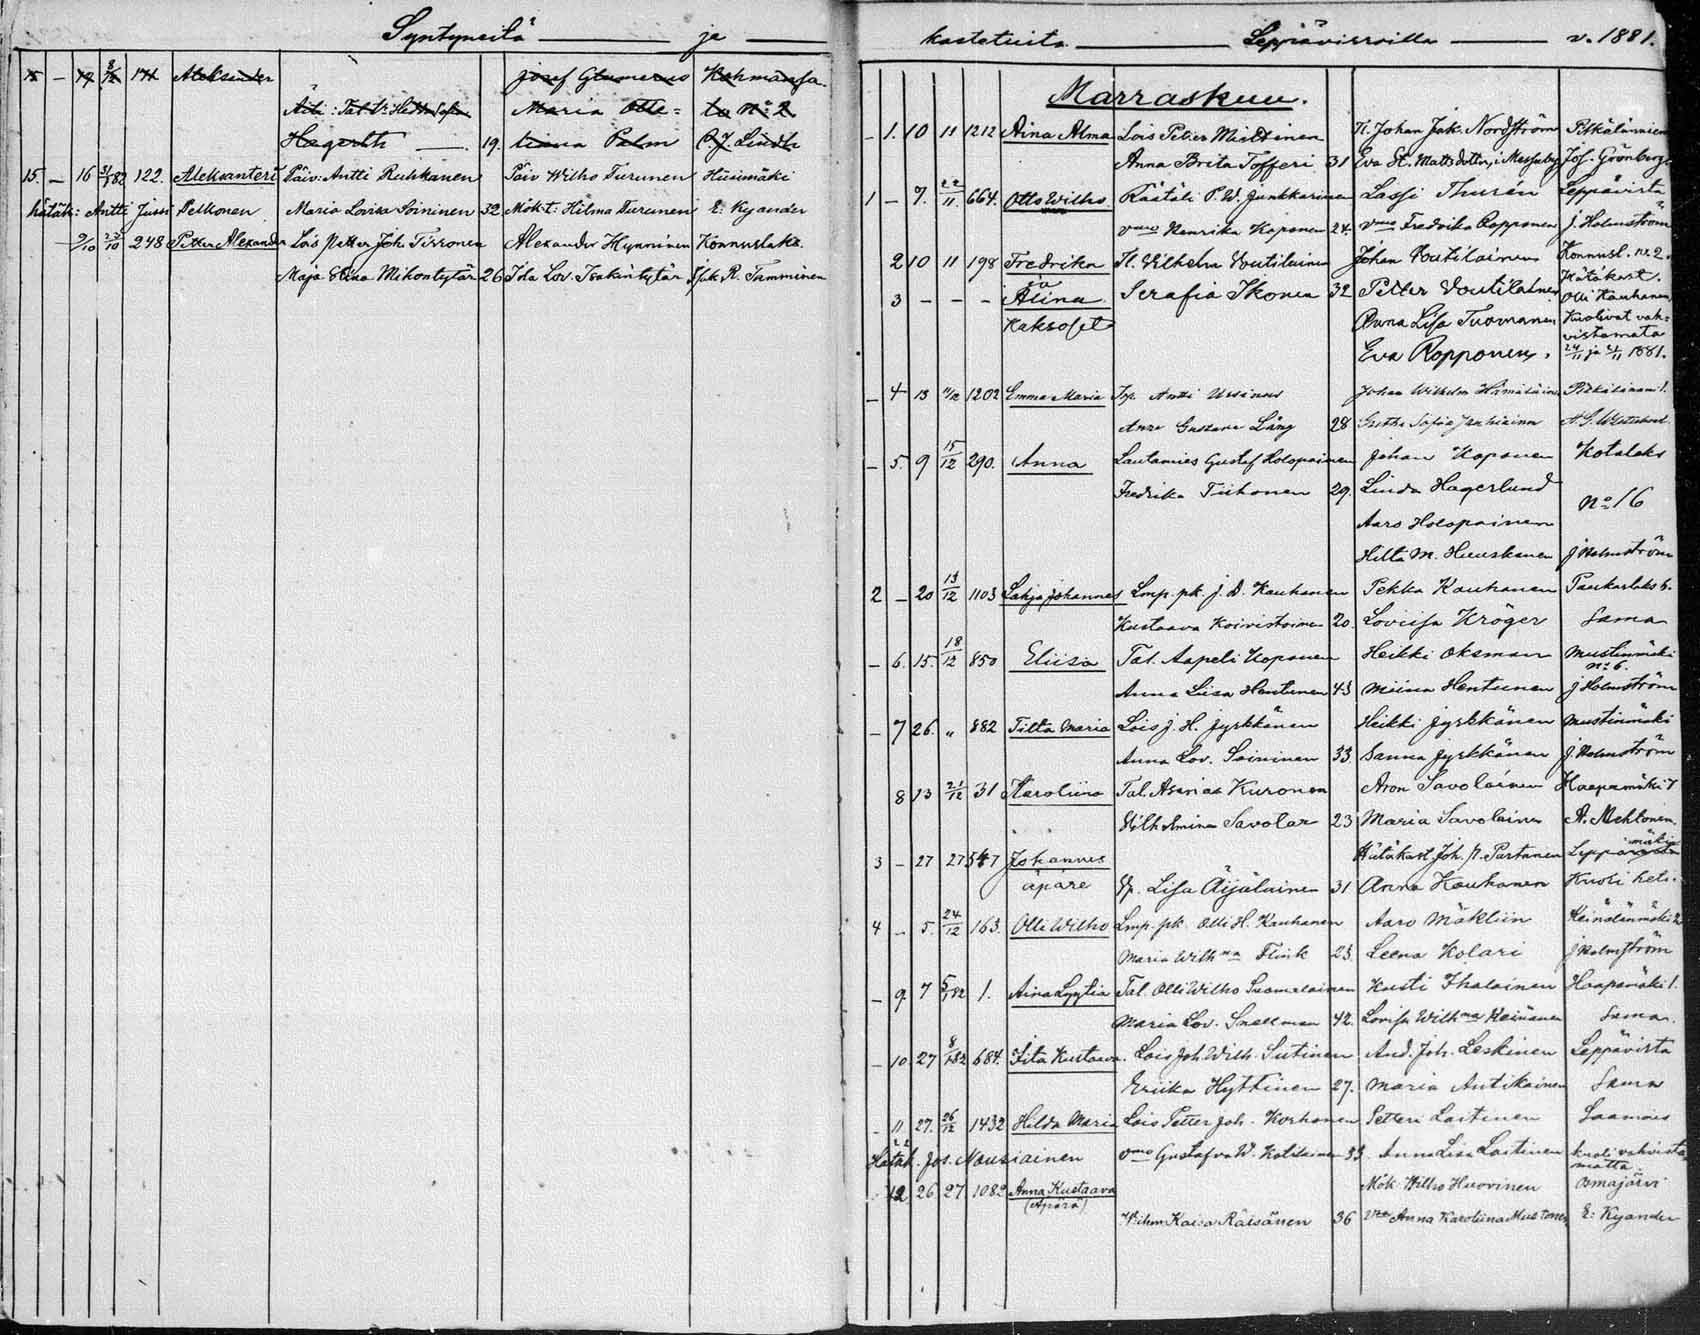 Syntyneitä ja
15 — 17 8/12 171 Aleksander Josef Glumerus Kohmansa-
Äiti: Tal. tr. Hedda Sofia Maria Otte= la No 2
Hagerth — 19. liana Palm P. J. Lindh
15. — 16 3/1 82 122. Aleksanteri Päiv: Antti Ruhkanen Päiv Wilho Turunen Hüsimäki
hätäk: Antti Jussi Pelkonen Maria Lovisa Soininen 32. Mök.t: Hilma Turunen E: Kyander
9/10 23/10 248 Petter Alexander Lois Petter Joh. Tirronen Alexander Hynninen Konnuslaks.
Maja Stina Mikontytär 26 Ida Lov. Isakintytär R. Tamminen
kastetuita Leppävirroilla v. 1881.
Marraskuu.
— 1. 10 11 1212 Aina Alma Lois Petter Miettinen H. Johan Jak. Nordström Pitkälännien
Anna Brita Tofferi 31 Eva St. Mattsdotter, i Messuby Jos. Grönberg
1 — 7. 22/11. 664. Otto Wilho Räätäli P. W. Junkkarinen Lassi Thurén Leppävirta
vmo Henrika Koponen 24. vmo Fredrika Ropponen J. Holmström
2 10 11 198 Fredrika Il. Vilhelm Voutilainen Johan Voutilainen Konnusl. no 2.
ja Hätäkast.
3 — — — Alina Serafia Ikonen 32 Petter Voutilainen Olli Kauhanen
Kaksoset Anna Lisa Tuovinanen Kuolivat vah=
vistamata
Eva Ropponen. 24/11 ja 21/11 1881.
— 4 13 11/12 1202 Emma Maria Antti Ursinus Johan Wilhelm Hämäläinen
Anna Gustava Lång 28 Gretha Sofia
— 5. 9 15/12 290. Anna Lautamies Gustaf Holopainen Johan Koponen Kotalaks
Fredrika Tiihonen 29. Linda Hagerlund No 16
Aaro Holopainen
Hilta M. Huuskonen J Holmström
2 — 20 13/12 1103 Lahja Johannes Lmp. pk. J. D. Kauhanen Pekka Kauhanen Paukarlaks 6.
Kustaava Koivistoinen 20. Lovisa Kröger Sama
— 6. 15. 18/12 850 Eliisa Tal. Aapeli Koponen Heikki Oksman Mustinmäki
No 6.
Anna Liisa Hentunen 43 Miina Hentunen J Holmström
— 7 26. „ 882 Tilta Maria Lois J. H. Jyrkkänen Heikki Jyrkkänen Mustinmäki
Anna Lov. Soininen 33. Sanna Jyrkkänen J Holmström
8 13 21/12 31 Karoliina Tal. Asarias Kuronen Aron Savolainen Haapamäki 7
Wilhelmina Savolar 23 Maria Savolainen A. Mehtonen.
3 — 27 27 547 Johannes Hätäkast. Joh. P. Partanen Leppämäki
äpäre Lisa Äijälainen 31 Anna Kauhanen Kuoli heti.
4 — 5. 24/12 163. Olli Wilho Lmp. pk. Olli H. Kauhanen Aaro Mäkliin Keinälänmäki 2
Maria Wilhna Flink 23. Leena Kolari J Holmström
— 9. 7 5/1 82 1. Aina Lyytia Tal. Olli Wilho Suomalainen Kusti Ihalainen Haapamäki 1.
Maria Lov. Snellman 42. Lovisa Wilhna Keinänen Sama.
— 10 27 8/1 82 684. Iita Kustaava. Lois Joh. Wilh. Sutinen And. Joh. Leskinen Leppävirta
Eriika Hyttinen 27. Maria Antikainen Sama
— 11 27. 26/12 1432 Hilda Maria Lois Petter Joh. Korhonen Petteri Laitinen Saamais
Hätäk. Jos. Nousiainen vmo Gustafva W. Kotilainen 33. Anna Lisa Laitinen kuoli vahvista
matta.
12 26 27 1082 Anna Kustaava Mök. Wilho Huovinen Osmajärvi
(Äpärä)
Kaisa Räisänen 36 Anna Karoliina Mustonen E: Kyander